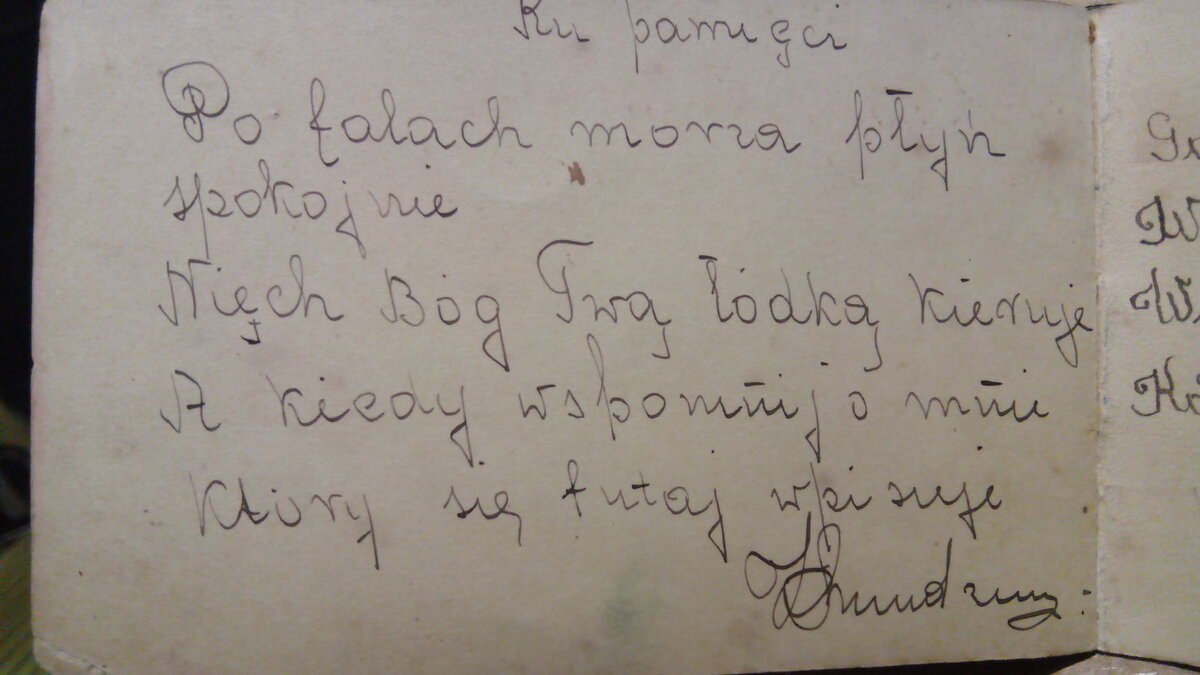 Ku pamięci
Po falach morza płyń
spokojnie
Nięch Bóg Twą łódką kieruje
A kiedy wspomńij o mńie
Ktory się tutaj wpisuje